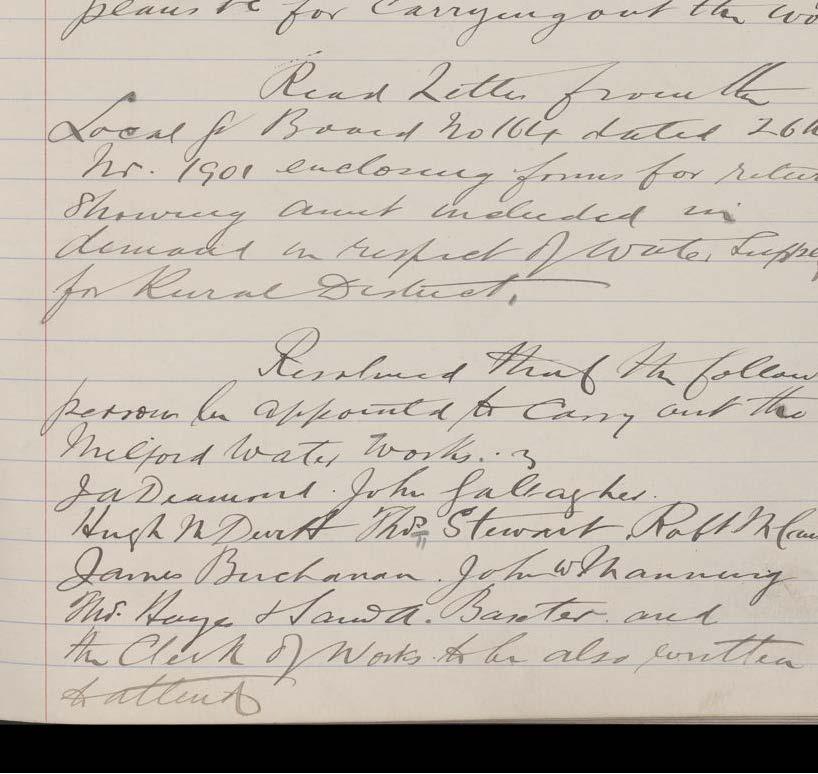 plans be for Carrying out the wo
Read Letter from the
Local Gt Board No 164 dated 26th
Nr. 1901 enclosing forms for retur
Showing amt included in
demand in respect of Water Supp
for Rural District.
Resolved that the follow
persons be appointed to Carry out the
Milford Water Works.
Jas Deamond. John Gallagher.
Hugh Mc Devitt Thos Stewart. Robt Mc
James Buchanan. John W Manning
Thos. Hayes & Saml A. Baxter. and
the Clerk of Works to be also written
to attend